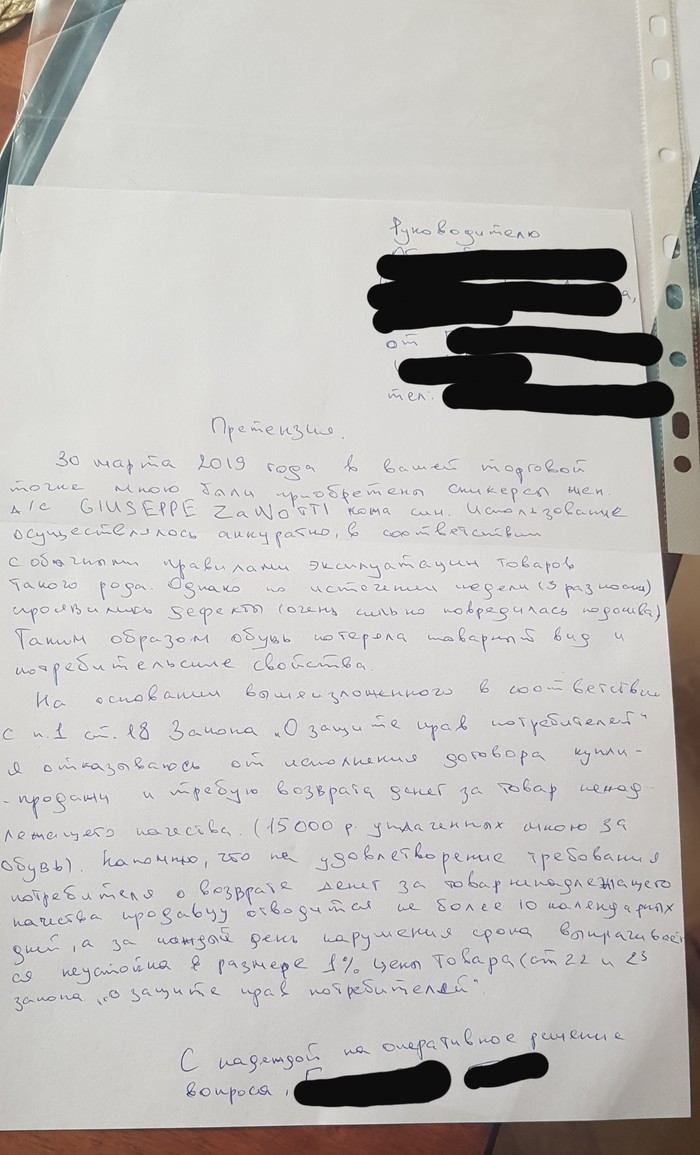 Руководителю
от
тел:
Претензия.
30 марта 2019 года в вашей торговой
точке мною были приобретены сникерсы жен.
д/с GIUSEPPE ZaNoTTI кожа син. Использование
осуществлялось аккуратно, в соответствии
с обычными правилами эксплуатации товаров
такого рода. Однако по истечении недели (3 разноски)
проявились дефекты (очень сильно повредилась подошва)
Таким образом обувь потеряла товарный вид и
потребительские свойства.
На основании вышеизложенного в соответствии
с п.1 ст. 18 Закона „О защите прав потребителей"
я отказываюсь от исполнения договора купли-
-продажи и требую возврата денег за товар ненад-
лежащего качества. (15000 р. уплаченных мною за
обувь). Напомню, что на удовлетворение требования
потребителя о возврате денег за товар ненадлежащего
качества продавцу отводится не более 10 календарных
дней, а за каждый день нарушения срока выплачивает
ся неустойка в размере 1% цены товара (ст 22 и 23
закона „о защите прав потребителей".
С надеждой на оперативное решение
вопроса,